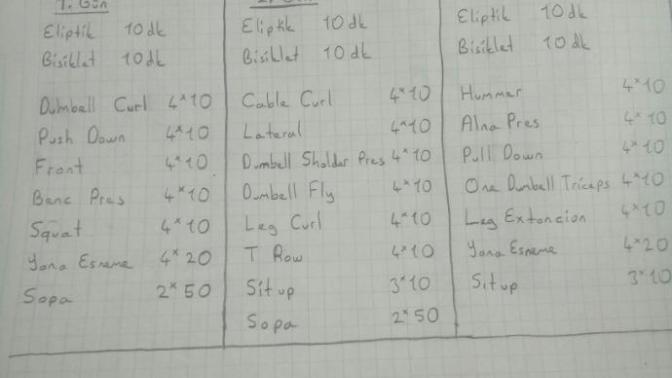 1. Gün
Eliptik 10 dk
Bisiklet 10 dk
Dumbell Curl 4x10
Push Down 4x10
Front 4x10
Benc Pres 4x10
Squat 4x10
Yana Esneme 4x20
Sopa 2x50
2. Gün
Eliptik 10 dk
Bisiklet 10 dk
Cable Curl 4x10
Lateral 4x10
Dumbell Sholdar Pres 4x10
Dumbell Fly 4x10
Leg Curl 4x10
T Row 4x10
Sit up 3x10
Sopa 2x50
Eliptik 10 dk
Bisiklet 10 dk
Hummer 4x10
Alna Pres 4x10
Pull Down 4x10
One Dumbell Triceps 4x10
Leg Extoncion 4x10
Yana Esneme 4x20
Sit up 3x10